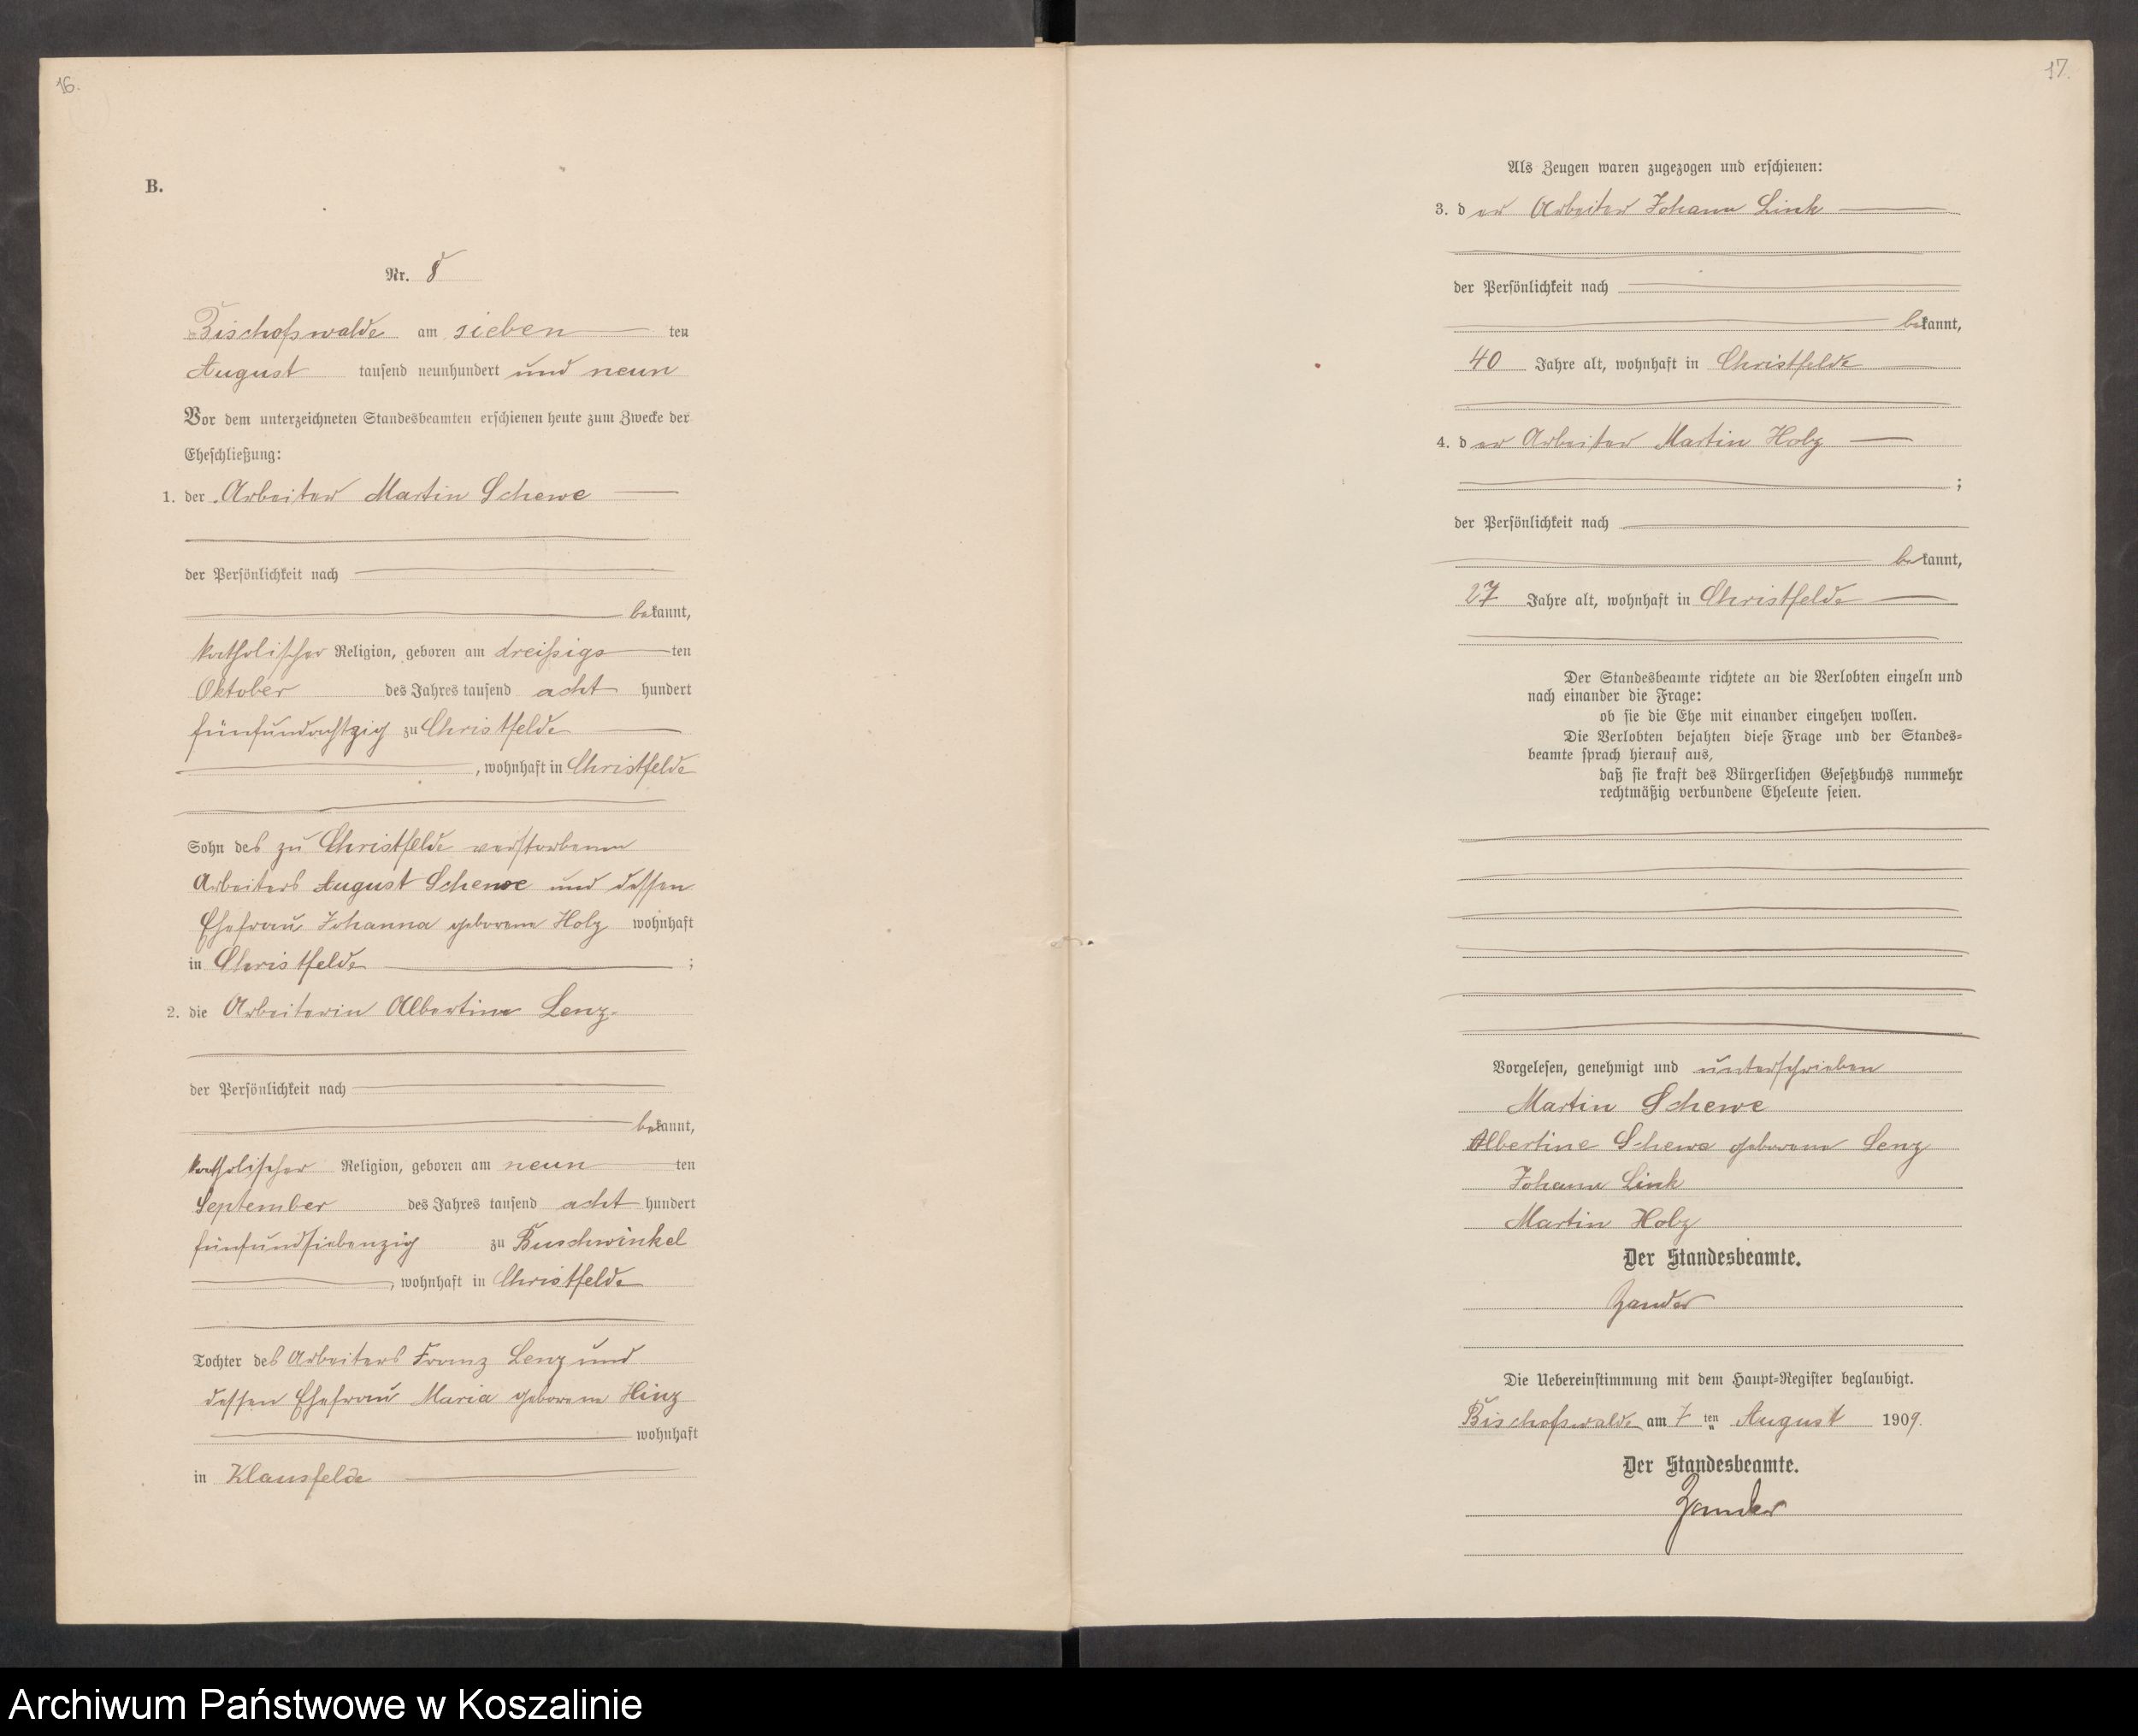 16.
B.
Nr. 8
Bischofswalde am sieben ten
August tausend neunhundert und neun
Vor dem unterzeichneten Standesbeamten erschienen heute zum Zwecke der
Eheschließung:
1. der Arbeiter Martin Schewe
der Persönlichkeit nach
bekannt,
katholischer Religion, geboren am dreißigs ten
Oktober des Jahres tausend acht hundert
fünfundachtzig zu Christfelde
, wohnhaft in Christfelde
Sohn des zu Christfelde verstorbenen
Arbeiters August Schewe und dessen
Ehefrau Johanna geborene Holz wohnhaft
in Christfelde ;
2. die Arbeiterin Albertine Lenz
der Persönlichkeit nach
bekannt,
katholischer Religion, geboren am neun ten
September des Jahres tausend acht hundert
fünfundsiebenzig zu Buschwinkel
, wohnhaft in Christfelde
Tochter des Arbeiters Franz Lenz und
dessen Ehefrau Maria geborene Hinz
wohnhaft
in Klausfelde
17.
Als Zeugen waren zugezogen und erschienen:
3. der Arbeiter Johann Link
der Persönlichkeit nach
bekannt,
40 Jahre alt, wohnhaft in Christfelde
4. der Arbeiter Martin Holz
;
der Persönlichkeit nach
bekannt,
27 Jahre alt, wohnhaft in Christfelde
Der Standesbeamte richtete an die Verlobten einzeln und
nach einander die Frage:
ob sie die Ehe mit einander eingehen wollen.
Die Verlobten bejahten diese Frage und der Standes=
beamte sprach hierauf aus,
daß sie kraft des Bürgerlichen Gesetzbuchs nunmehr
rechtmäßig verbundene Eheleute seien.
Vorgelesen, genehmigt und unterschrieben
Martin Schewe
Albertine Schewe geborene Lenz
Johann Link
Martin Holz
Der Standesbeamte.
Zander
Die Uebereinstimmung mit dem Haupt=Register beglaubigt.
Bischofswalde am 7 ten August 1909.
Der Standesbeamte.
Zander
Archiwum Państwowe w Koszalinie